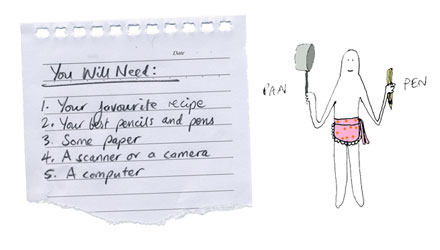 Date
You Will Need:
1. Your favourite recipe
2. Your best pencils and pens
3. Some paper
4. A scanner or a camera
5. A computer
PAN
PEN